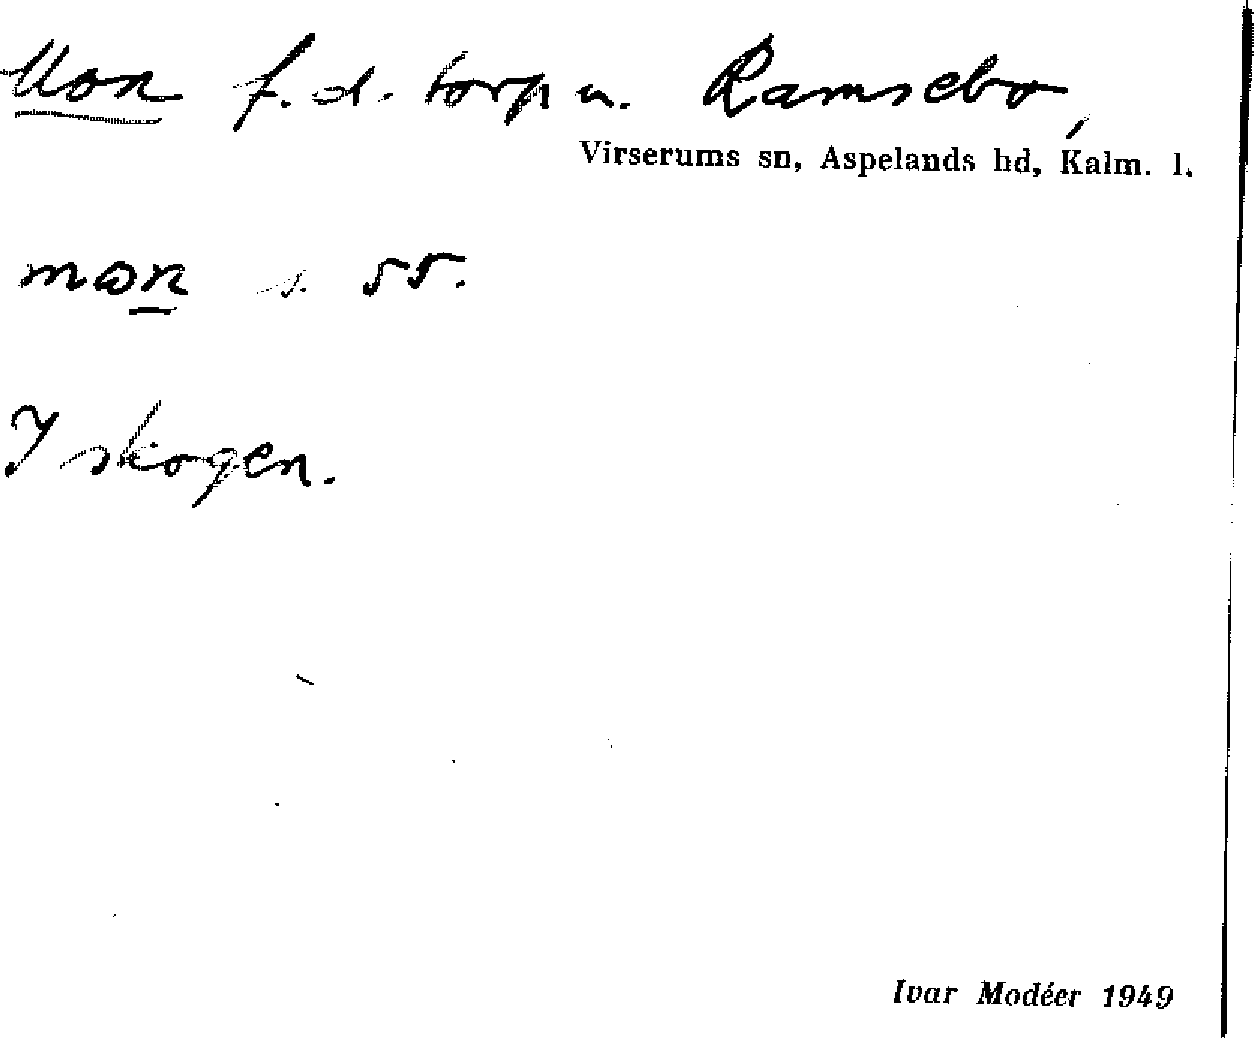 Mon f.d. torp u. Ramsebo,
Virserums sn, Aspelands hd, Kalm. l.
mon s. 55.
I skogen.
Ivar Modéer 1949